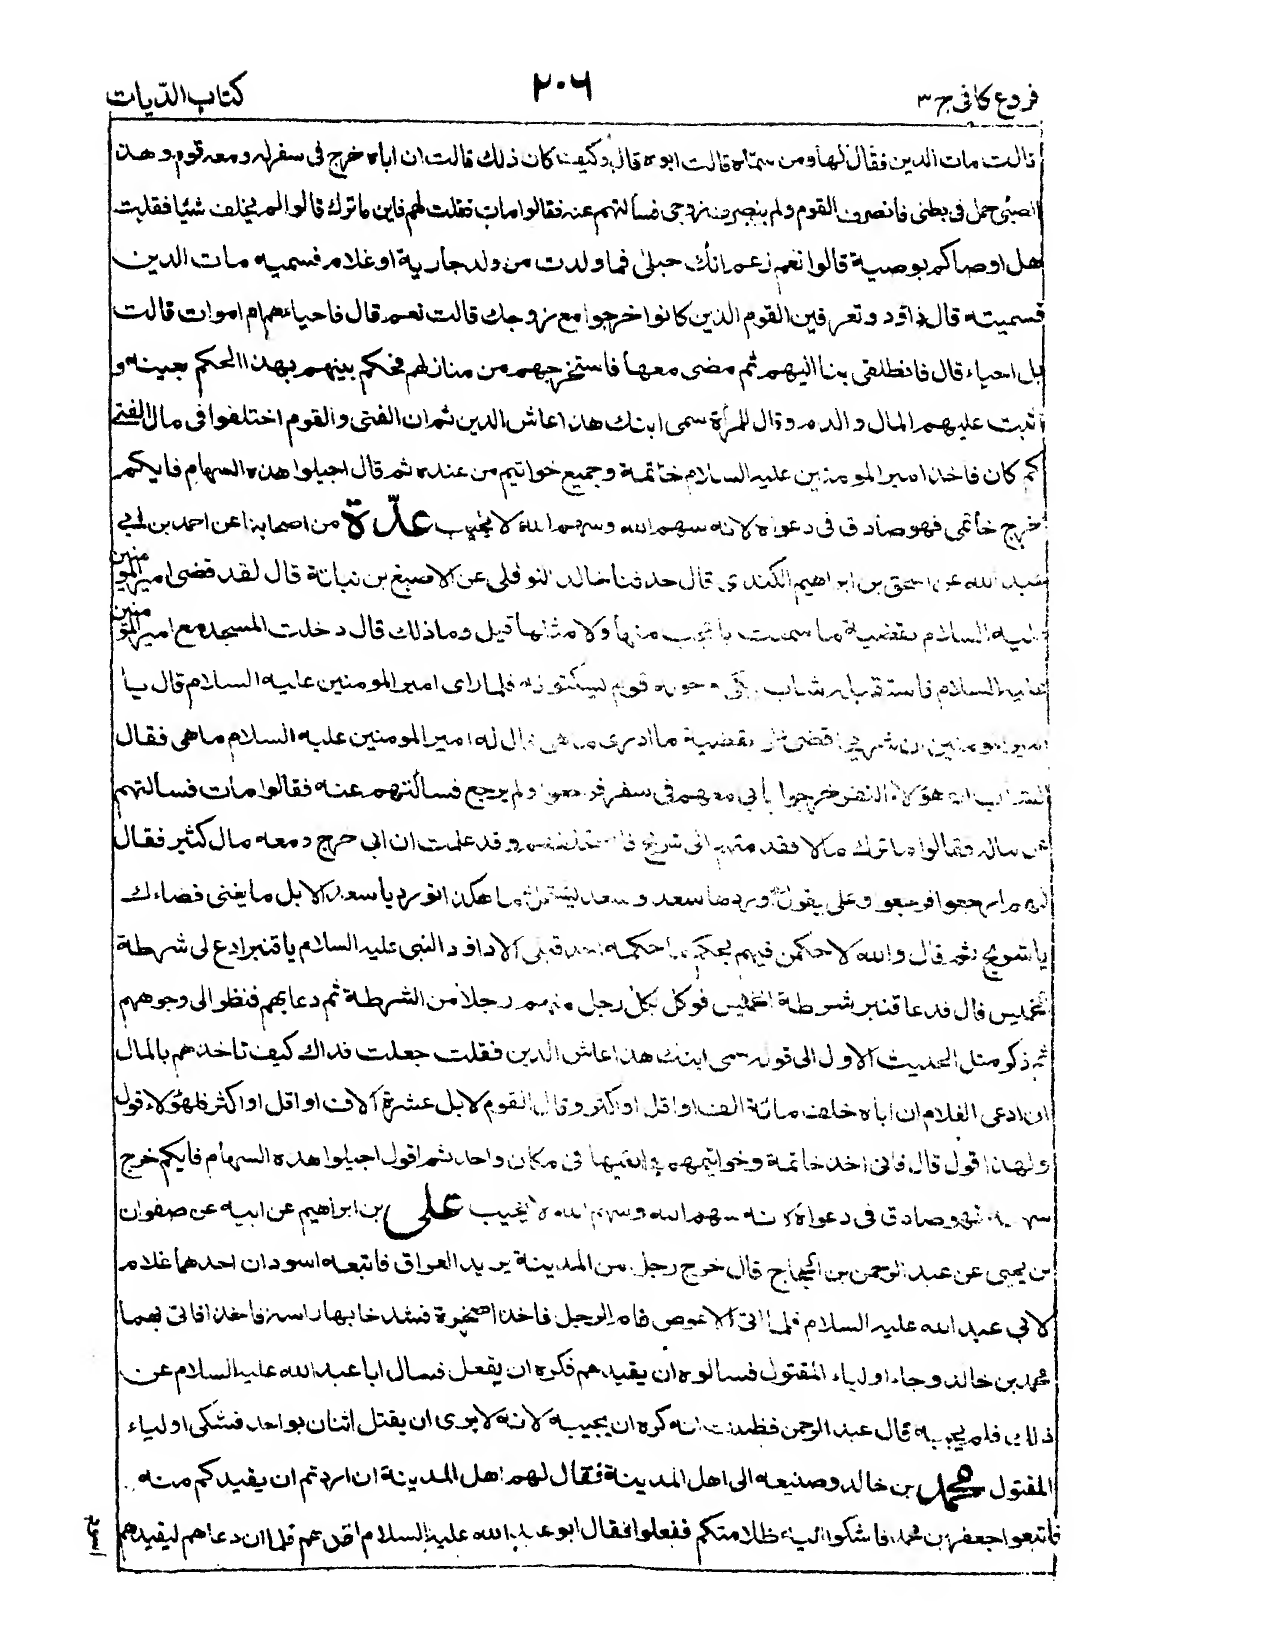 فروع كافى ج ٣
٢٠٦
كتاب الديات
قالت مات الدين فقال لها ومن سماه قالت ابوه قال وكيف كان ذلك قالت ان اباه خرج فى سفر له ومعه قوم وهذا
الصبى حمل فى بطنى فانصرف القوم ولم ينصرف زوجى فسألتهم عنه فقالوا مات فقلت لهم فاين ما ترك قالوا لم يخلف شيئا فقلت
هل اوصاكم بوصية قالوا نعم زعم انك حبلى فما ولدت من ولد جارية او غلام فسميه مات الدين
فسميته قال داود وتعرفين القوم الذين كانوا خرجوا مع زوجك قالت نعم قال فاحياء هم ام اموات قالت
بل احياء قال فانطلقى بنا اليهم ثم مضى معها فاستخرجهم من منازلهم فحكم بينهم بهذا الحكم بعينه و
اثبت عليهم المال والدم وقال للمرأة سمى ابنك هذا عاش الدين ثم ان الفتى والقوم اختلفوا فى مال الفتى
كم كان فاخذ امير المومنين عليه السلام خاتمه وجميع خواتيم من عنده ثم قال اجيلوا هذه السهام فايكم
اخرج خاتمى فهو صادق فى دعواه لانه سهم الله وسهم الله لا يخيب عدة من اصحابنا عن احمد بن ابى
عبد الله عن اسحق بن ابراهيم الكندى قال حدثنا خالد النوفلى عن الاصبغ بن نباتة قال لقد قضى امير المومنين
عليه السلام بقضية ما سمعت باعجب منها ولا مثلها قيل وما ذلك قال دخلت المسجد مع امير المومنين
عليه السلام فاستقبله شاب يبكى وحوله قوم يسكتونه فلما راى امير المومنين عليه السلام قال يا
امير المومنين ان شريحا قضى على بقضية ما ادرى ما هى قال له امير المومنين عليه السلام ما هى فقال
الشاب ان هؤلاء النفر خرجوا بابى معهم فى سفر فرجعوا ولم يرجع فسألتهم عنه فقالوا مات فسالتهم
عن ماله فقالوا ما ترك مالا فقدمتهم الى شريح فاستحلفهم وقد علمت ان ابى خرج ومعه مال كثير فقال
لهم ارجعوا فرجعوا وعلى يقول اوردها سعد وسعد يشتمل ما هكذا تورد يا سعد الابل ما يغنى قضاءك
يا شريح ثم قال والله لاحكمن فيهم بحكم ما حكمه احد قبلى الا داود النبى عليه السلام يا قنبر ادع لى شرطة
الخميس قال فدعا قنبر شرطة الخميس فوكل بكل رجل منهم رجلا من الشرطة ثم دعا بهم فنظر الى وجوههم
ثم ذكر مثل الحديث الاول الى قوله سمى ابنك هذا عاش الدين فقلت جعلت فداك كيف تاخذهم بالمال
ان ادعى الغلام ان اباه خلف مائة الف او اقل او اكثر وقال القوم لا بل عشرة آلاف او اقل او اكثر فلهؤلاء قول
ولهذا قول قال فانى اخذ خاتمه وخواتيمهم والقيها فى مكان واحد ثم اقول اجيلوا هذه السهام فايكم خرج
سهمه فهو صادق فى دعواه لانه سهم الله وسهم الله لا يخيب على بن ابراهيم عن ابيه عن صفوان
بن يحيى عن عبد الرحمن بن الحجاج قال خرج رجل من المدينة يريد العراق فاتبعه اسودان احدهما غلام
لابى عبد الله عليه السلام فلما اتى الاعوص نام الرجل فاخذا صخرة فشدخا بها راسه فاخذا فاتى بهما
محمد بن خالد وجاء اولياء المقتول فسالوه ان يقيدهم فكره ان يفعل فسال ابا عبد الله عليه السلام عن
ذلك فلم يجبه قال عبد الرحمن فظننت انه كره ان يجيبه لانه لا يرى ان يقتل اثنان بواحد فشكى اولياء
المقتول محمد بن خالد وصنيعه الى اهل المدينة فقال لهم اهل المدينة ان اردتم ان يقيدكم منه
فاتبعوا جعفر بن محمد فاشكوا اليه ظلامتكم ففعلوا فقال ابو عبد الله عليه السلام اقدهم فلما ان دعاهم ليقيدهم